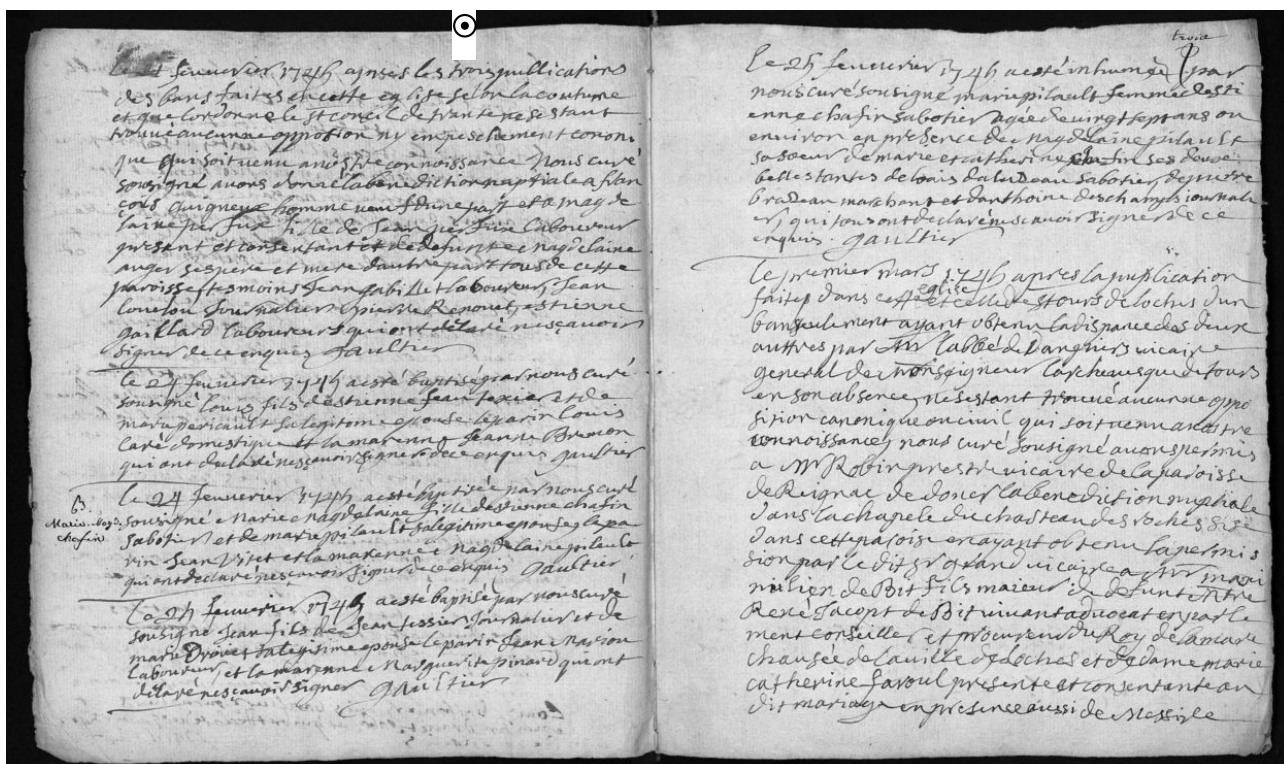 feuverier 1745 apres les trois publications
des bans faites en cette eglise selon la coutume
et que lordonne le st concil de trante ne sestant
trouvé aucunne oppotion ny empeschement cononi
que qui soit venu anostre connoissance nous curé
sousigné avons donné la benediction nuptiale a fran
cois guigneux homme veuf dune part et a magde
laine fille de Jean laboureur
present et consentant et de defunte magdelaine
auger ses pere et mere dautre part tous de cette
paroisse tesmoins Jean gabillet laboureur Jean
loulou Journalier pierre Renouet estienne
gaillard laboureurs qui ont déclaré ne scavoir
signer de ce enquis gaultier
le 24 feuverier 1745 a esté baptisé par nous curé
sousigné louis fils destienne Jean texier et de
marie pericault sa legitime epouse le parin louis
caré domestique et la marenne Jeanne Bremon
qui ont declaré ne scavoir signer de ce enquis gaultier
B
Marie magd.
chafin
le 24 feuverier 1745 a esté baptisée par nous curé
sousigné Marie Magdelaine fille destienne chafin
sabotier et de marie pilault sa legitime epouse le pa
rin Jean et la marenne Magdelaine pilault
qui ont declaré ne scavoir signer de ce enquis gaultier
le 25 feuverier 1745 a esté baptisé par nous curé
sousigné Jean fils de Jean tessier Journalier et de
marie Drouet sa legitime epouse le parin Jean Marion
laboureur et la marenne Marguerite pinard qui ont
déclaré ne scavoir signer gaultier
trois
le 25 feuverier 1745 a esté inhumée par
nous curé sousigné marie pilault femme desti
enne chafin sabotier agée de vingt sept ans ou
environ en presence de magdelaine pilault
sa soeur de marie et catherine chafin ses deux
belles tantes de louis daludeau sabotier de pierre
bradeau marchant et danthoine deschamps journali
er, qui tous ont declaré ne scavoir signer de ce
enquis. gaultier
le premier mars 1745 apres la publication
faite dans cette eglise et celle de st ours de loches dun
ban seulement ayant obtenu la dispance des deux
auttres par Mr labbé de Dangviers vicaire
general de monseigneur larchevesque de tours
en son absence, ne sestant trouvé aucunne oppo
sition canonique ou civil qui soit venu anostre
connoissance, nous curé sousigné avons permis
a Mr Robin prestre vicaire de la paroisse
de Reignac de doner la benediction nuptiale
dans la chapele du chasteau des roches sis
dans cette paroise en ayant obtenu la permis
sion par le dit sr grand vicaire a Mr maxi
milien de Bit fils maieur de defunt Mtre
René Jacopt de Bit vivant advocat en parle
ment conseiller et procureur du Roy de la mare
chausée de la ville de loches et de dame marie
catherine faroul presente et consentante au
dit mariage en presence aussi de Messire